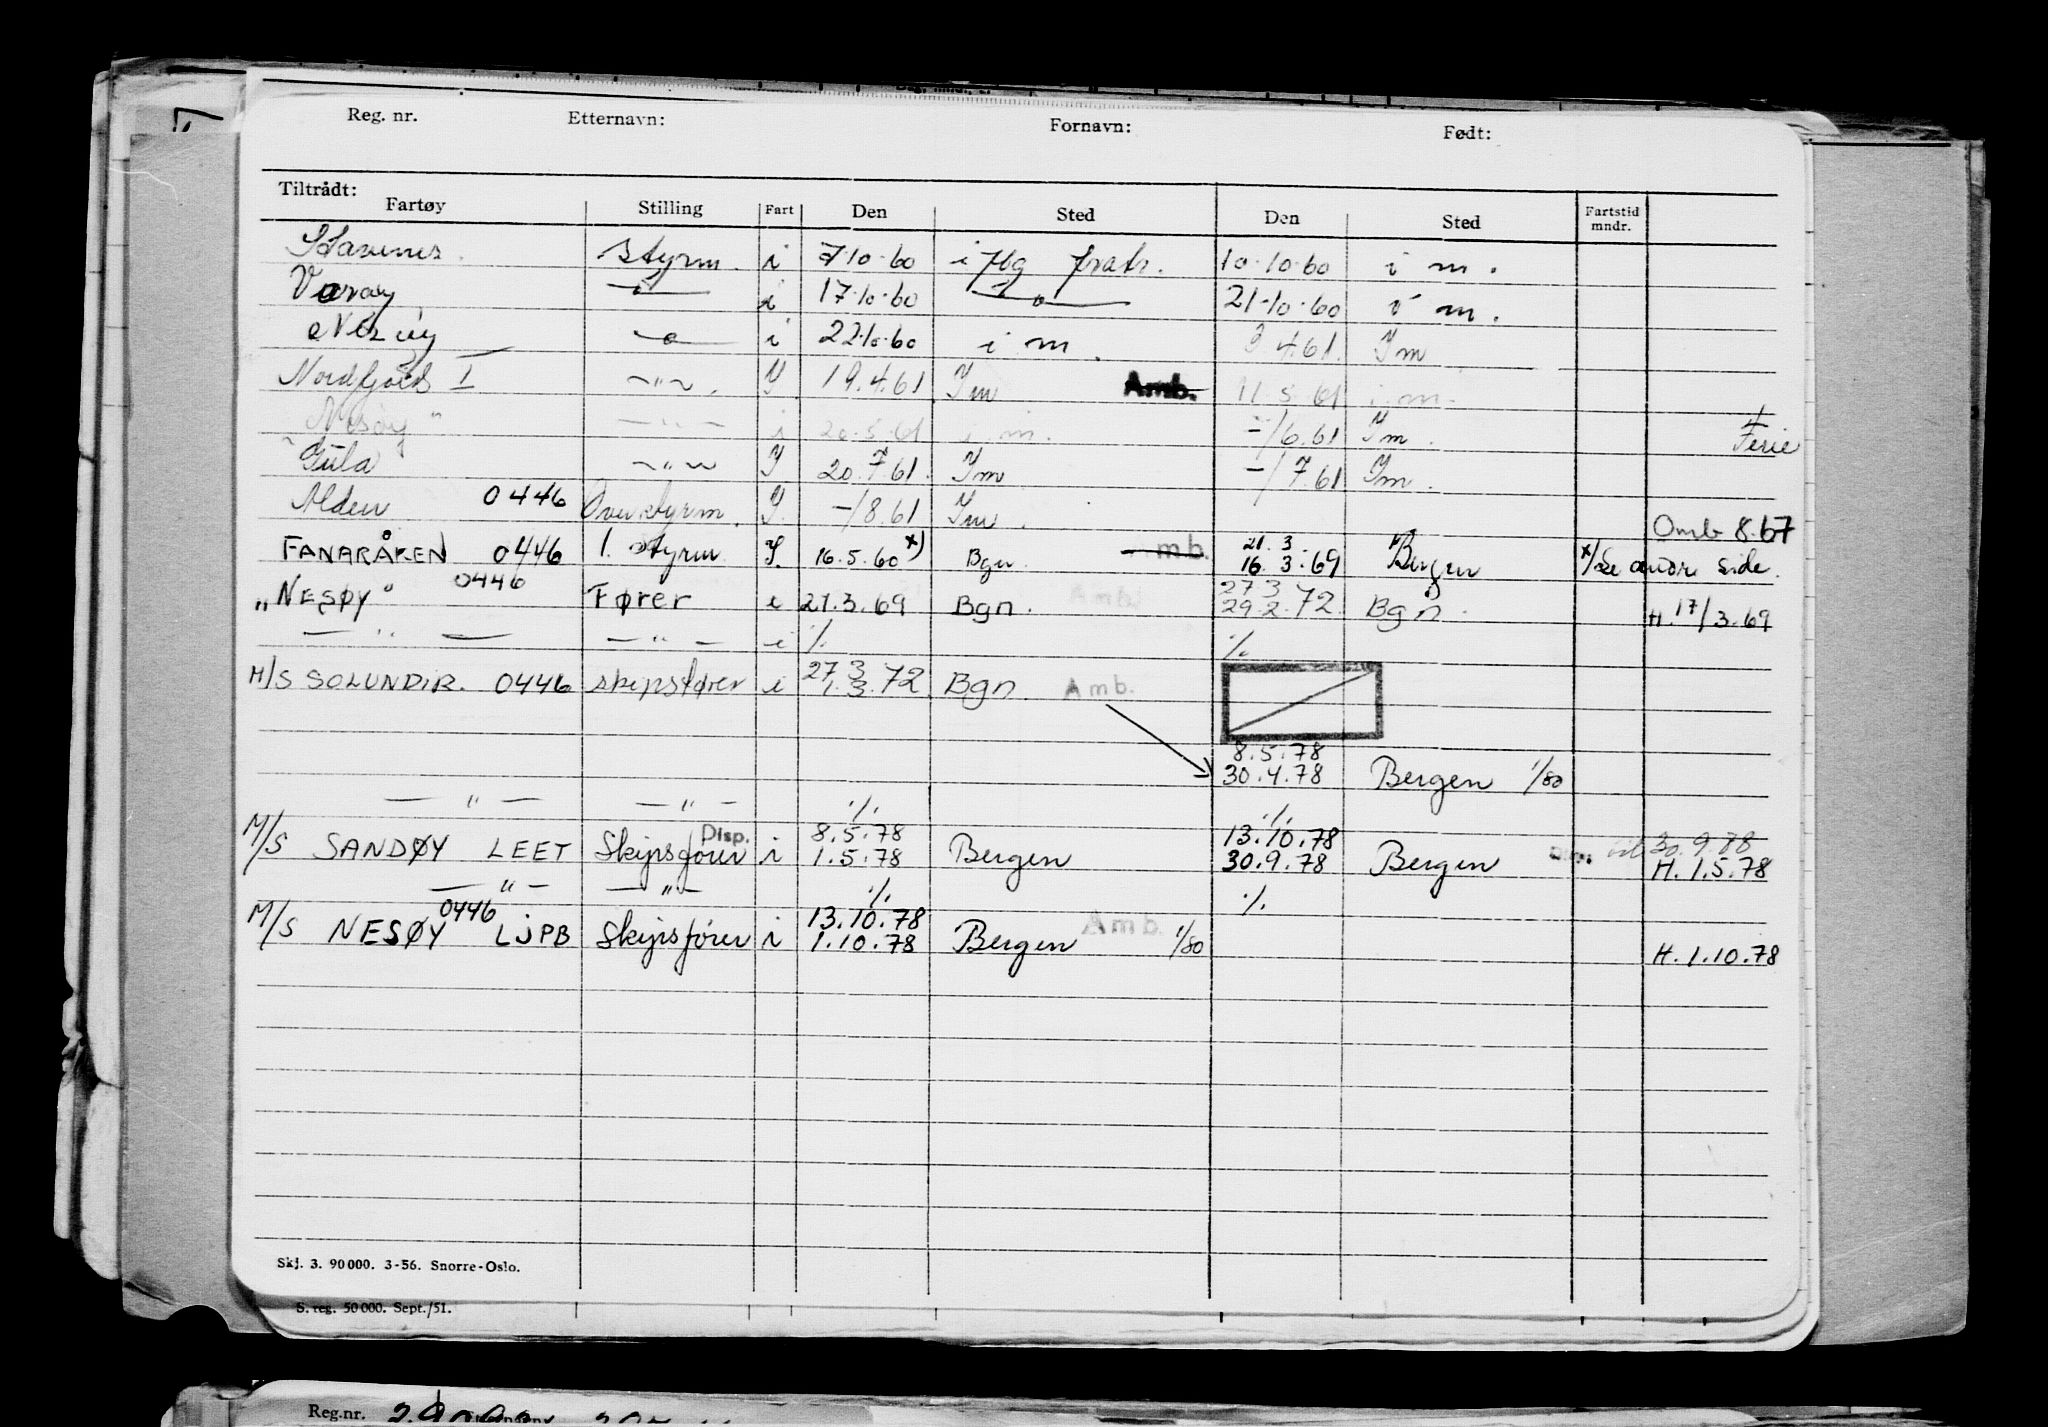 Reg. nr. Etternavn: Fornavn: Født:
Tiltrådt:
Fartøy Stilling Fart Den Sted Den Sted Fartstid mndr.
Stavenes styrm. i 7.10.60 i 10.10.60 i m.
Varøy —"— i 17.10.60 —"— 21.10.60 i m.
Nesøy —"— i 22.10.60 i m. 3.4.61. Im
Nordfjord I —"— . I 19.4.61 Im Amb. 11.5.61 i m.
Nesøy " —"— i 20.5.61 i m. -/6.61 Im. Ferie
Gula —"— I 20.7.61. Im -/7.61 Im.
Alden 0446 Overstyrm. I. -/8.61 Im. Omb 8.67
FANARÅKEN 0446 1. styrm I. 16.5.60 x) Bgn. mb. 21.3. 16.3.69 Bergen x/ Se andre side.
„NESØY" 0446 Fører i 21.3.69 Bgn. Amb. 27 3 29.2.72 Bgn. H. 17/3.69
— " — — " — i ./. ./.
M/S SOLUNDIR. 0446 skipsfører i 27 3 1.3.72 Bgn. Amb.
8.5.78
30.4.78 Bergen 1/80
— " — — " — ./. ./.
M/S SANDØY LEET Skipsfører Disp. i 8.5.78 1.5.78 Bergen 13.10.78 30.9.78 Bergen Disp. til 30.9.88 H. 1.5.78
— " — — " — ./. ./.
M/S NESØY 0446 LJPB Skipsfører i 13.10.78 1.10.78 Bergen Amb. 1/80 H. 1.10.78
Skj. 3. 90000. 3-56. Snorre-Oslo.
S. reg. 50000. Sept./51.
Reg.nr.